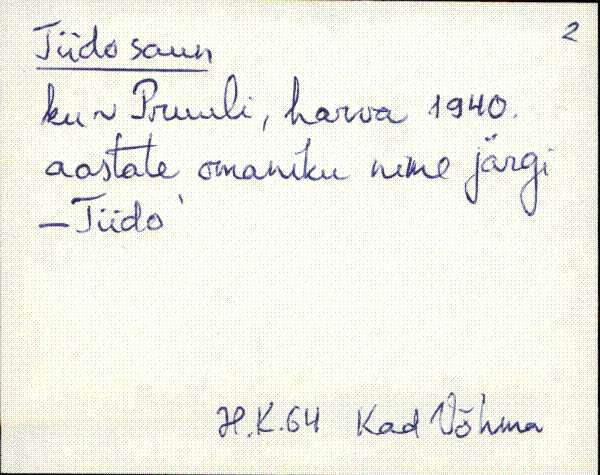 2
Tiido saun
ku ~ Pruuli, harva 1940.
aastate omaniku nime järgi
— Tiido'
H.K. 64 Kad Võhma